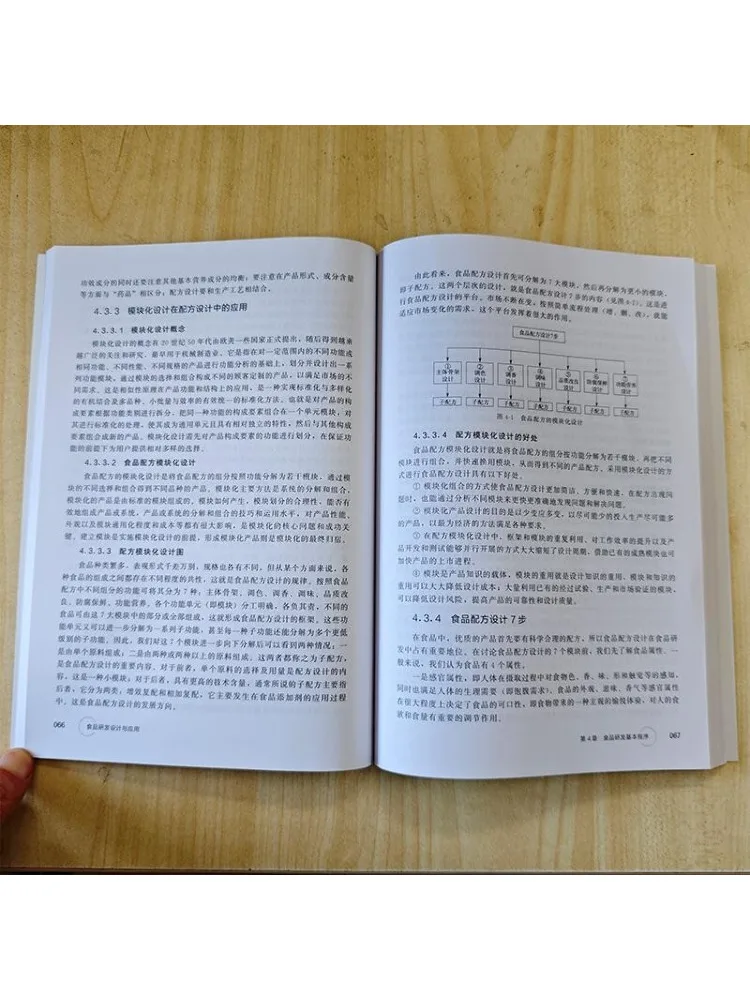 功效成分的同时还要注意其他基本营养成分的均衡；要注意在产品形式、成分含量
等方面与“药品”相区分；配方设计要和生产工艺相结合。
4.3.3 模块化设计在配方设计中的应用
4.3.3.1 模块化设计概念
模块化设计的概念在20世纪50年代由欧美一些国家正式提出，随后得到越来
越广泛的关注和研究，最早用于机械制造业。它是指在对一定范围内的不同功能或
相同功能、不同性能、不同规格的产品进行功能分析的基础上，划分并设计出一系
列功能模块，通过模块的选择和组合构成不同的顾客定制的产品，以满足市场的不
同需求。这是相似性原理在产品功能和结构上的应用，是一种实现标准化与多样化
的有机结合及多品种、小批量与效率的有效统一的标准化方法。也就是对产品的构
成要素根据功能类别进行拆分，把同一种功能的构成要素组合在一个单元模块，对
其进行标准化的处理，使其成为通用单元且具有相对独立的特性，然后与其他构成
要素组合成新的产品。模块化设计首先对产品构成要素的功能进行划分，在保证功
能的前提下为用户提供相对多样的选择。
4.3.3.2 食品配方模块化设计
食品配方的模块化设计是将食品配方的组分按照功能分解为若干模块，通过模
块的不同选择和组合得到不同品种的产品。模块化主要方法是系统的分解和组合。
模块化的产品是由标准的模块组成的。模块如何产生，模块划分的合理性，能否有
效地组成产品或系统，产品或系统的分解和组合的技巧和运用水平，对产品性能、
外观以及模块通用化程度和成本等都有很大影响，是模块化的核心问题和成功关
键。建立模块是实施模块化设计的前提，形成模块化产品则是模块化的最终归宿。
4.3.3.3 配方模块化设计图
食品种类繁多，表现形式千差万别，规格也各有不同，但从某个方面来说，各
种食品的组成之间都存在不同程度的共性，这就是食品配方设计的规律。按照食品
配方中不同组分的功能可将其分为7种：主体骨架、调色、调香、调味、品质改
良、防腐保鲜、功能营养。各个功能单元（即模块）分工明确，各负其责，不同的
食品可由这7大模块中的部分或全部组成，这就形成食品配方设计的框架。这些功
能单元又可以进一步分解为一系列子功能，甚至每一种子功能还能分解为多个更低
级别的子功能，因此，我们对这7个模块进一步向下分解后可以看到两种情况：一
是由单个原料组成，二是由两种或两种以上的原料组成。这两者都称之为子配方，
是食品配方设计的重要内容。对于前者，单个原料的选择及用量是配方设计的内
容，这是一种小模块；对于后者，具有更高的技术含量，通常所说的子配方主要指
后者，它分为两类：增效复配和相加复配，它主要发生在食品添加剂的应用过程
中。这是食品配方设计的发展方向。
066
食品研发设计与应用
由此看来，食品配方设计首先可分解为7大模块，然后再分解为更小的模块，
即子配方。这两个层次的设计，就是食品配方设计7步的内容（见图4-1）。这是进
行食品配方设计的平台。市场不断在变，按照简单流程处理（增、删、改），就能
适应市场变化的需求，这个平台发挥着很大的作用。
食品配方设计7步
① ② ③ ④ ⑤ ⑥ ⑦
主体骨架设计 调色设计 调香设计 调味设计 品质改良设计 防腐保鲜设计 功能营养设计
子配方 子配方 子配方 子配方 子配方 子配方 子配方
图 4-1 食品配方的模块化设计
4.3.3.4 配方模块化设计的好处
食品配方模块化设计就是将食品配方的组分按功能分解为若干模块，再把不同
模块进行组合，并快速换用模块，从而得到不同的产品配方。采用模块化设计的方
式进行食品配方设计具有以下好处。
① 模块化组合的方式使食品配方设计更加简洁、方便和快速，在配方出现问
题时，也能通过分析不同模块来更快更准确地发现问题和解决问题。
② 模块化产品设计的目的是以少变应多变，以尽可能少的投入生产尽可能多
的产品，以最为经济的方法满足各种要求。
③ 在配方模块化设计中，框架和模块的重复利用、对工作效率的提升以及产
品开发和测试能够并行开展的方式大大缩短了设计周期，借助已有的成熟模块也可
加快产品的上市进程。
④ 模块是产品知识的载体，模块的重用就是设计知识的重用，模块和知识的
重用可以大大降低设计成本；大量利用已有的经过试验、生产和市场验证的模块，
可以降低设计风险，提高产品的可靠性和设计质量。
4.3.4 食品配方设计7步
在食品中，优质的产品首先要有科学合理的配方，所以食品配方设计在食品研
发中占有重要地位。在讨论食品配方设计的7个模块前，我们先了解食品属性。一
般来说，我们认为食品有4个属性。
一是感官属性，即人体在摄取过程中对食物色、香、味、形和触觉等的感知，
同时也满足人体的生理需要（即饱腹需求）。食品的外观、滋味、香气等感官属性
在很大程度上决定了食品的可口性，即食物带来的一种主观的愉悦体验，对人的食
欲和食量有重要的调节作用。
第4章 食品研发基本程序
067